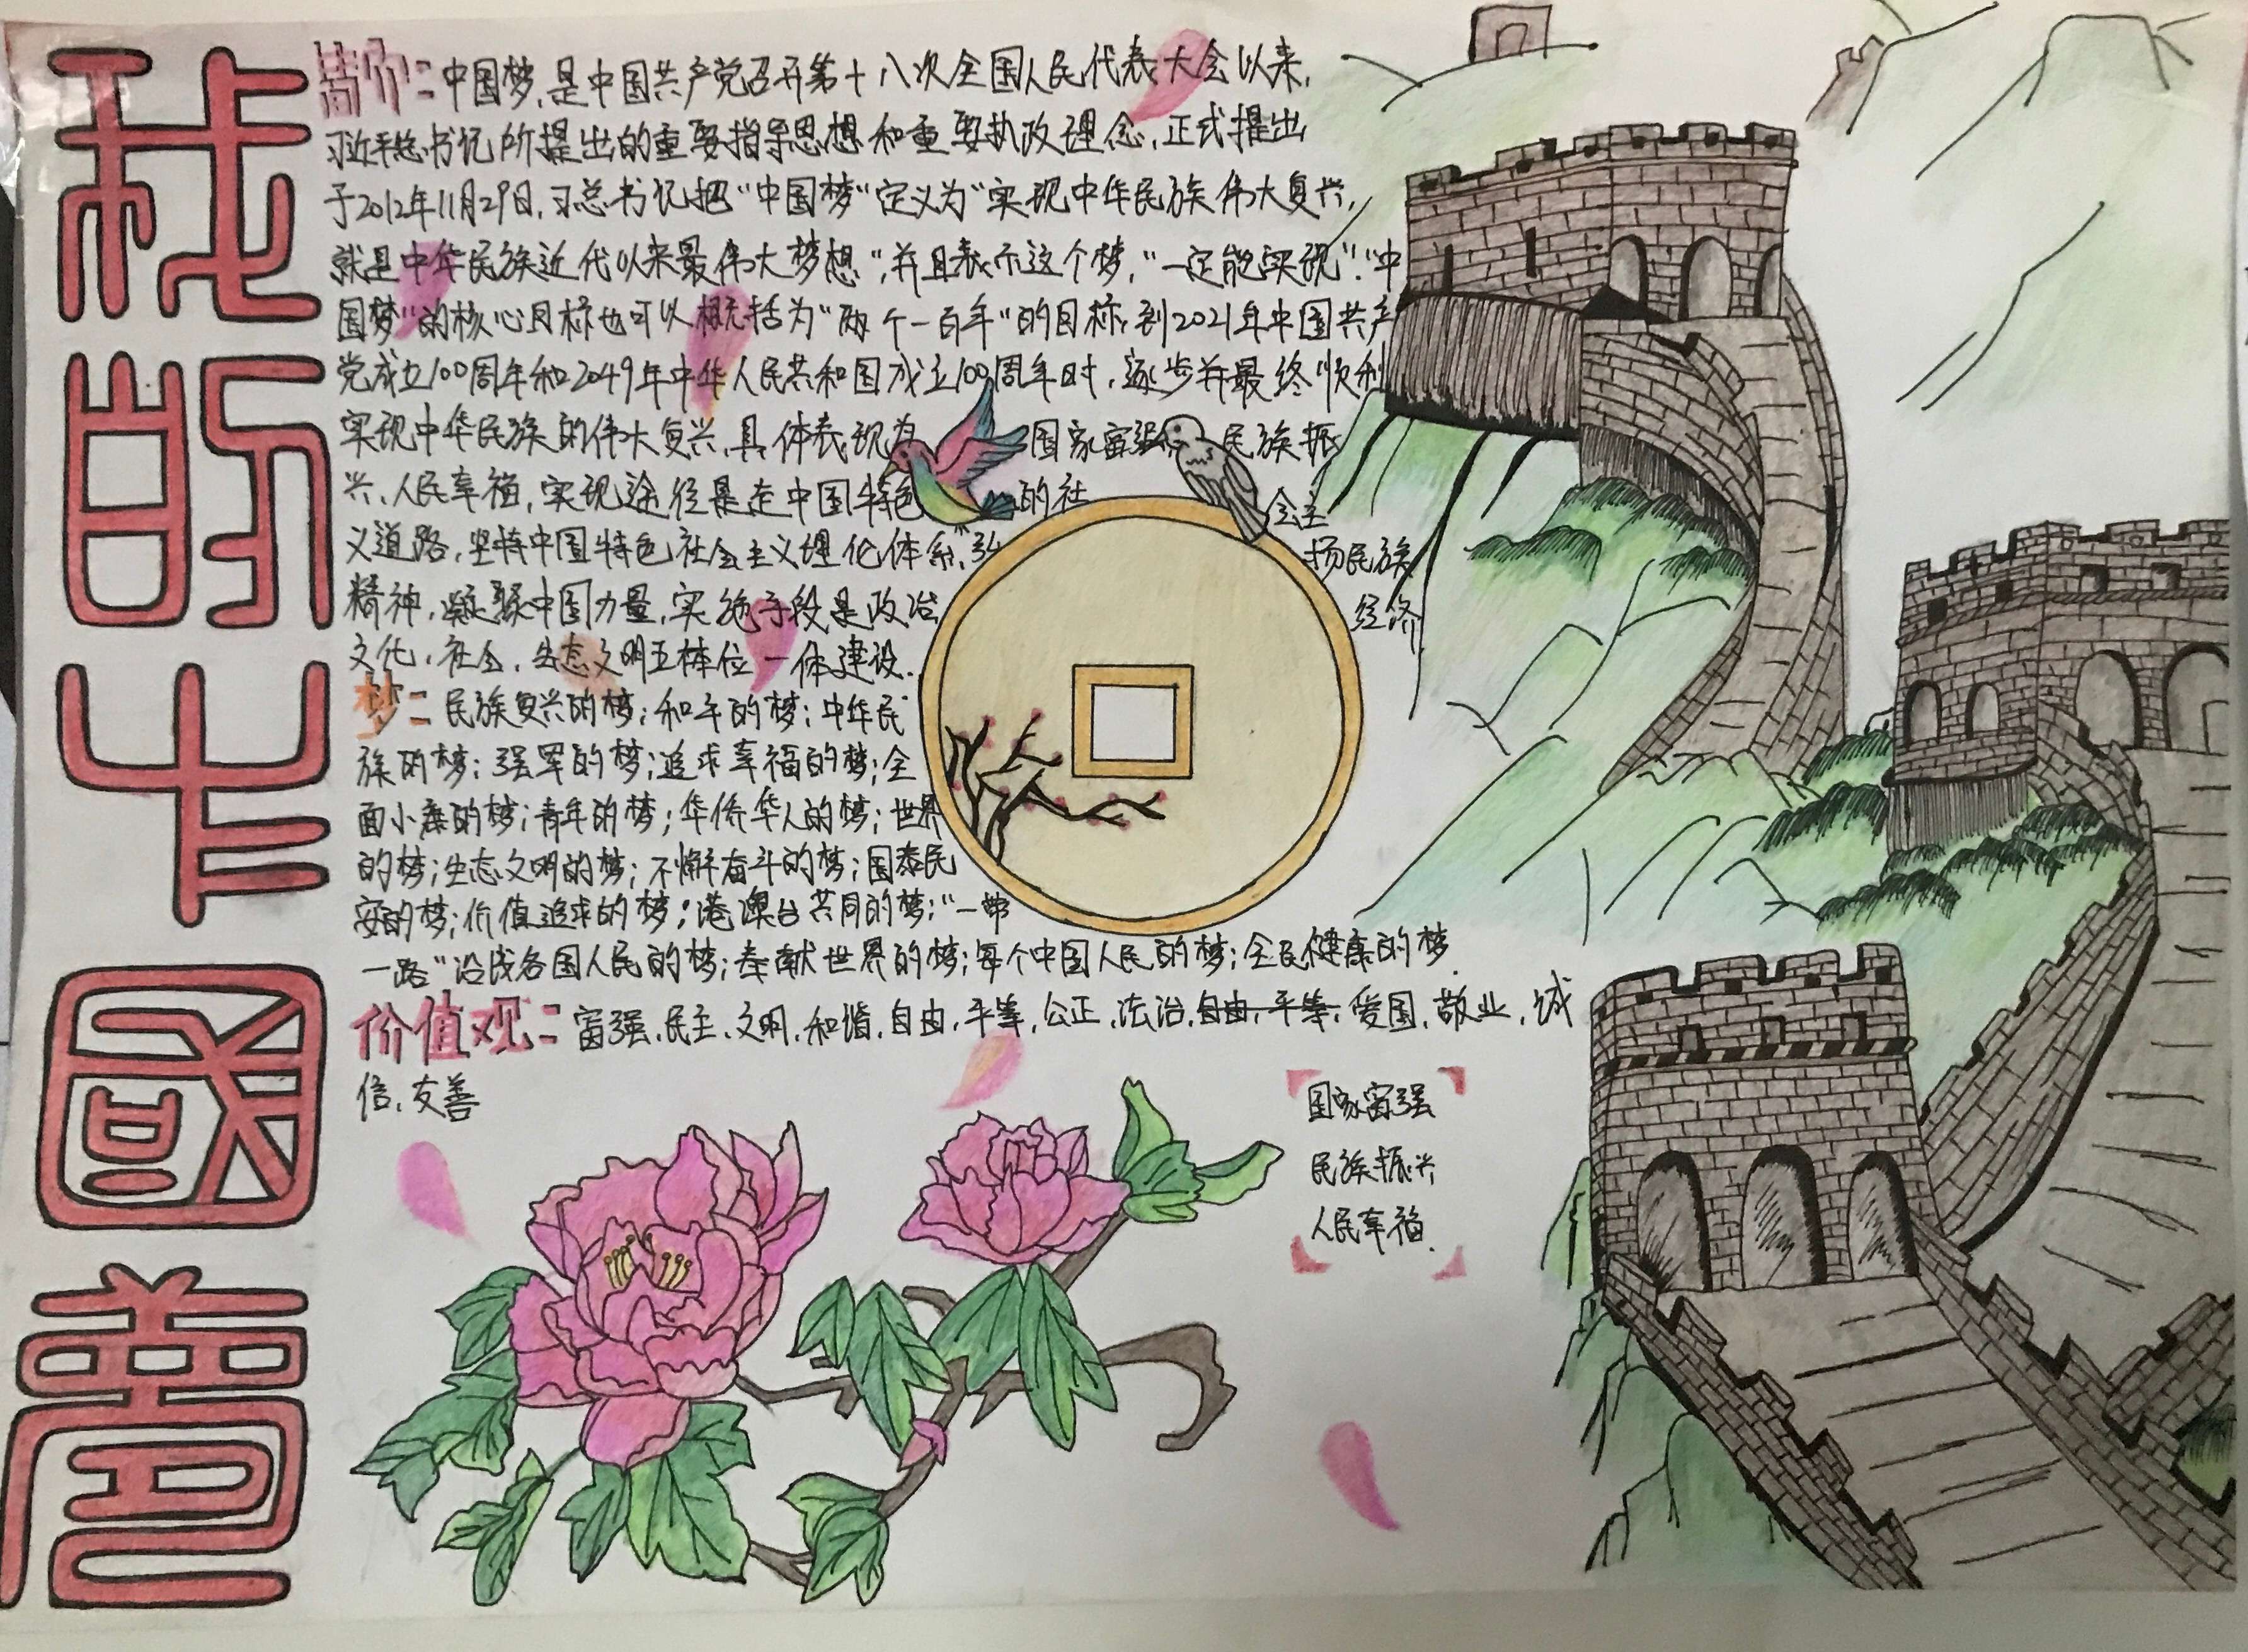 我的中國夢
简介：中国梦，是中国共产党召开第十八次全国人民代表大会以来，
习近平总书记所提出的重要指导思想和重要执政理念，正式提出
于2012年11月29日，习总书记把“中国梦”定义为“实现中华民族伟大复兴，
就是中华民族近代以来最伟大梦想”，并且表示这个梦，“一定能实现”．“中
国梦”的核心目标也可以概括为“两个一百年”的目标，到2021年中国共产
党成立100周年和2049年中华人民共和国成立100周年时，逐步并最终顺利
实现中华民族的伟大复兴，具体表现为 国家富强 民族振
兴、人民幸福，实现途径是走中国特色 的社 会主
义道路，坚持中国特色社会主义理论体系、弘 扬民族
精神，凝聚中国力量，实施手段是政治 经济
文化，社会，生态文明五体位一体建设．
梦：民族复兴的梦；和平的梦；中华民
族的梦；强军的梦；追求幸福的梦；全
面小康的梦；青年的梦；华侨华人的梦；世界
的梦；生态文明的梦；不懈奋斗的梦；国泰民
安的梦；价值追求的梦；港澳台共同的梦；“一带
一路”沿线各国人民的梦；奉献世界的梦；每个中国人民的梦；全民健康的梦．
价值观：富强、民主、文明、和谐、自由，平等，公正，法治，自由，平等，爱国，敬业，诚
信、友善
国家富强
民族振兴
人民幸福．